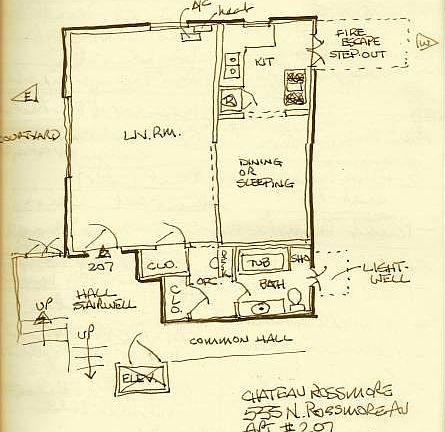 A/C
heat
FIRE
ESCAPE
STEP-OUT
W
KIT
E
COURTYARD
LIV. RM.
R
DINING
OR
SLEEPING
CLO.
TUB
SHO
LIGHT-
WELL
207
DR.
BATH
CLO.
HALL
STAIRWELL
UP
UP
COMMON HALL
ELEV.
CHATEAU ROSSMORE
535 N. ROSSMORE AV
APT #207